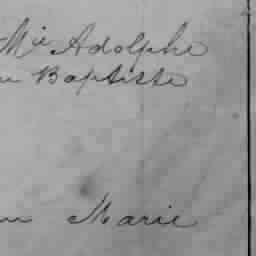 Mie Adolphe
Baptiste
Marie